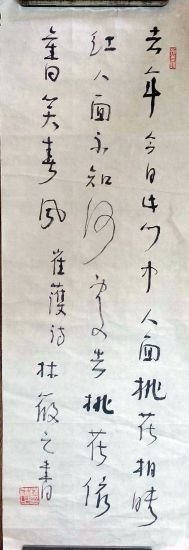 去年今日此門中人面桃花相映
紅人面不知何處去桃花依
舊笑春風 崔護詩 林筱之書